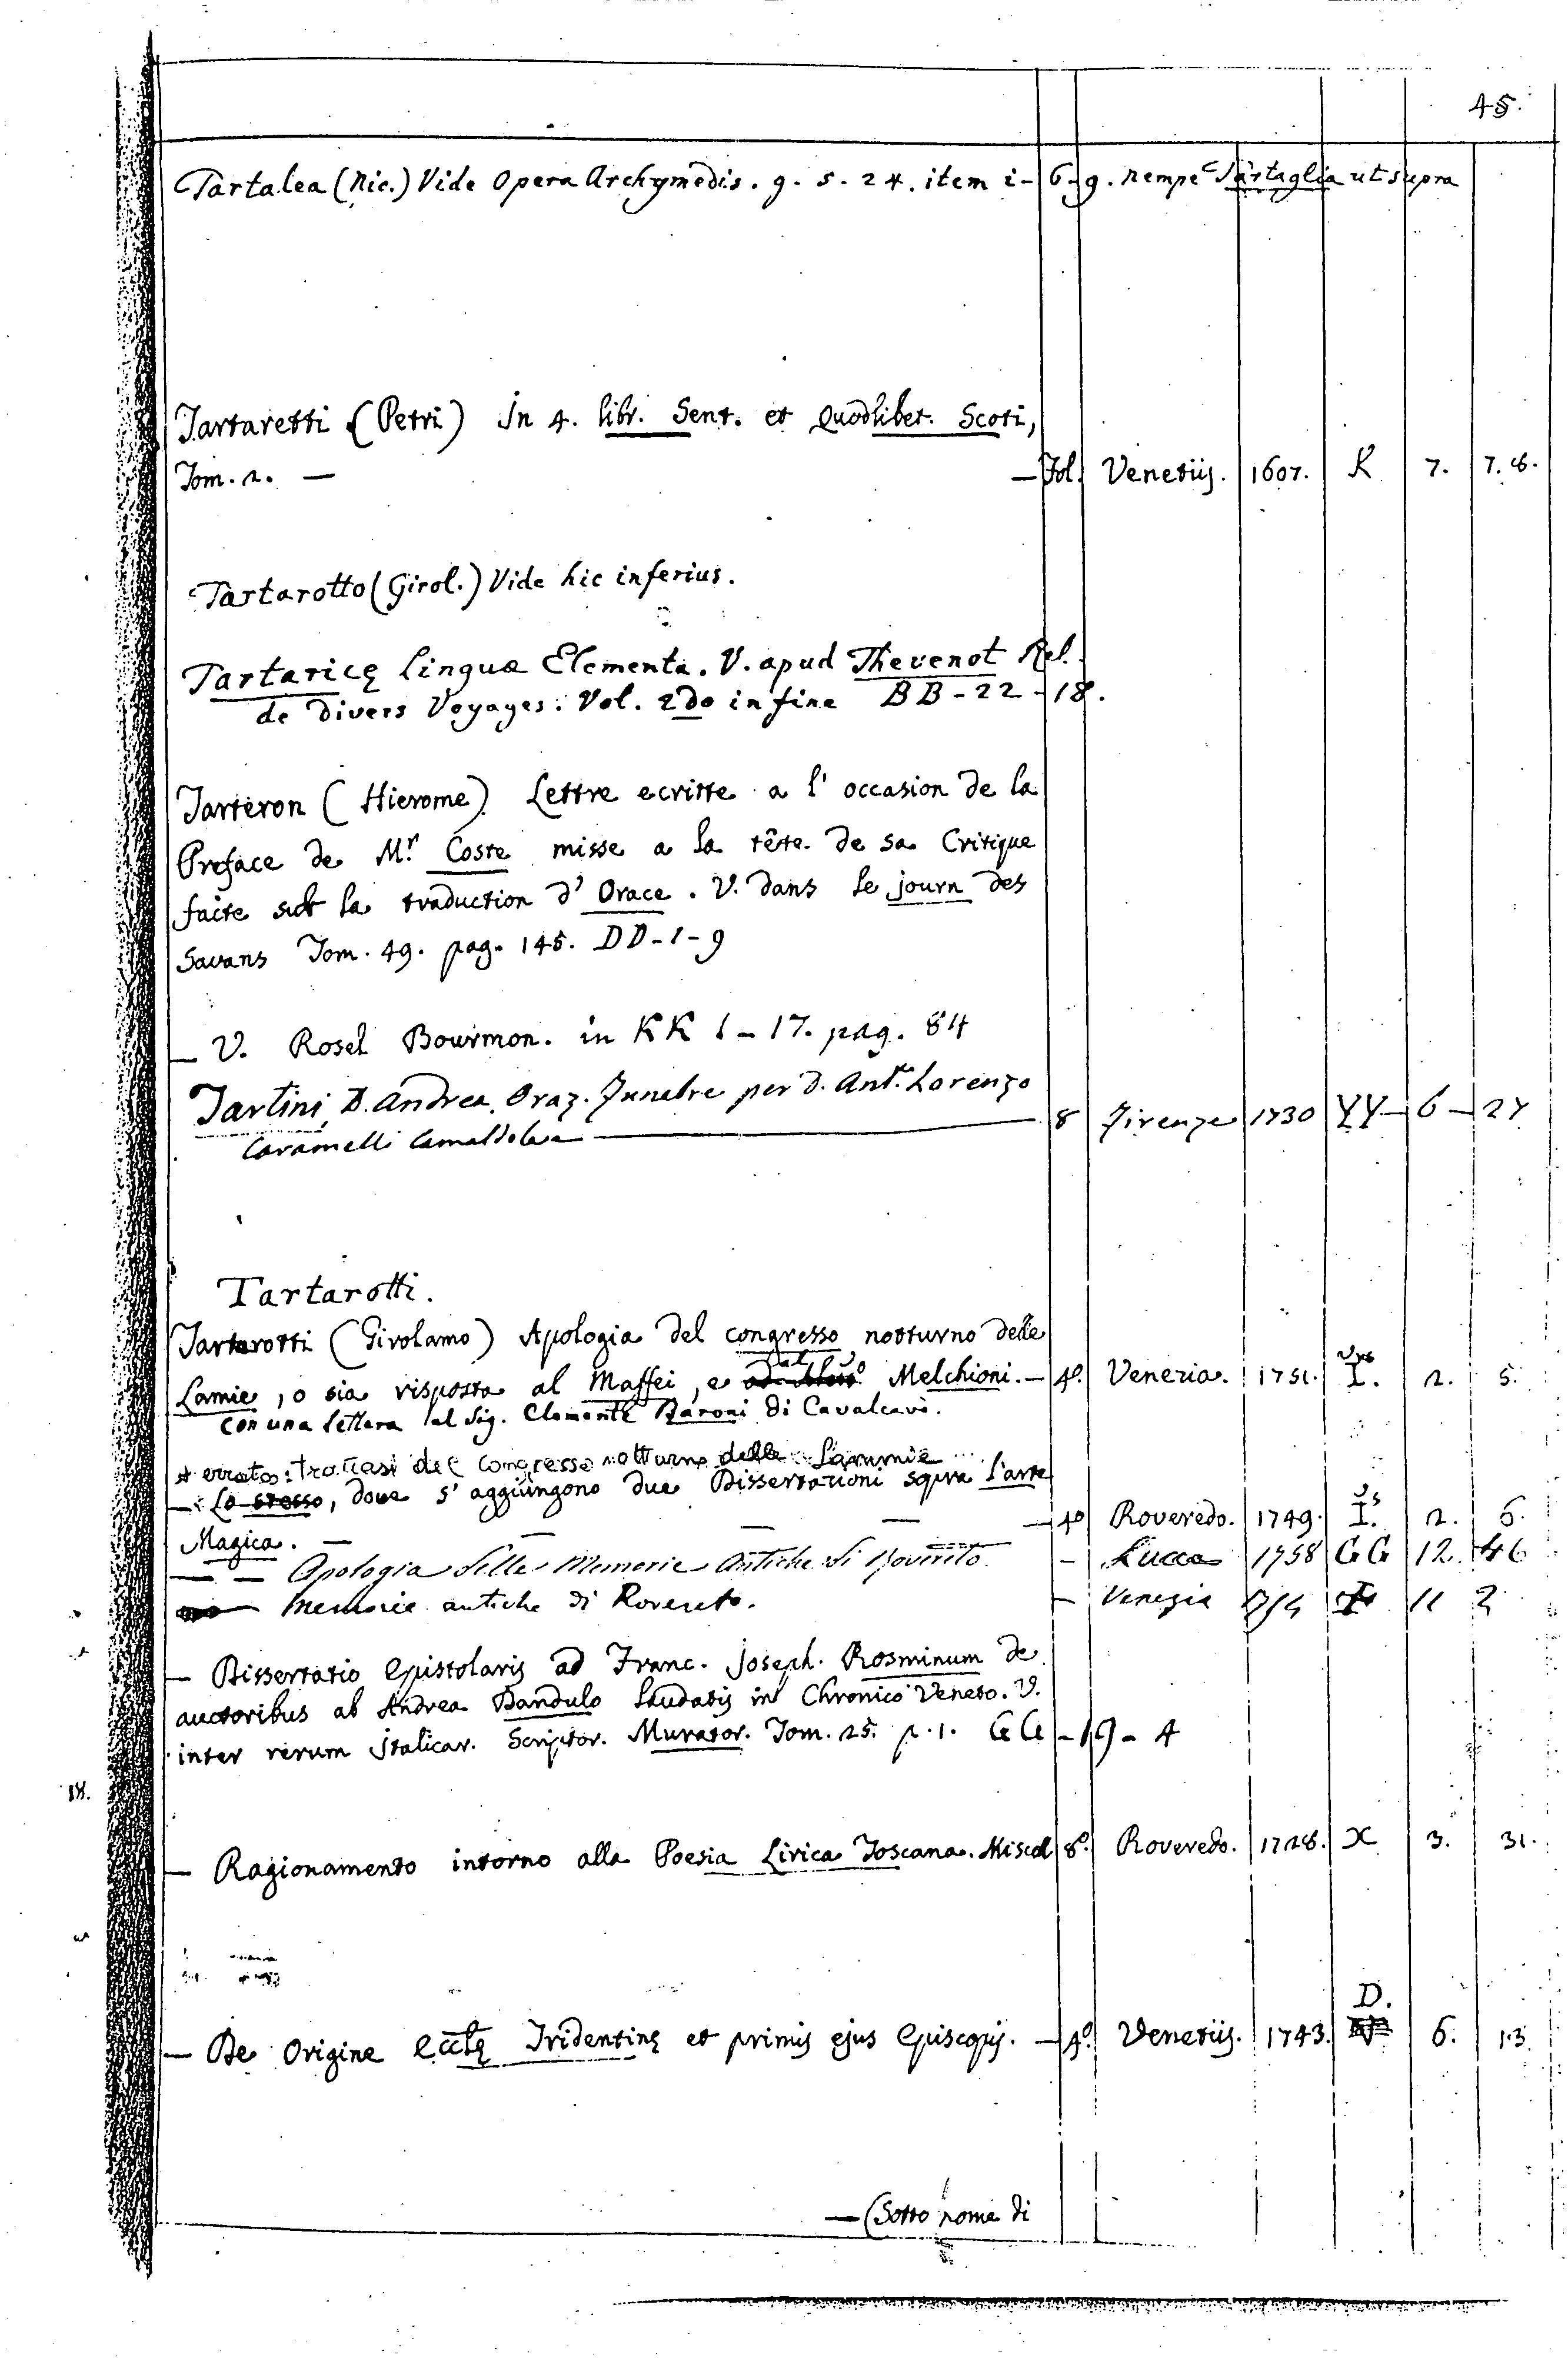 45.
Tartalea (Nic.) Vide Opera Archymedis. 9. 5. 24. item i-6-9. nempe Tartaglia ut supra
Tartaretti (Petri) In 4. libr. Sent. et Quodlibet. Scoti,
Tom. 2. — — Fol. Venetiis. 1607. K 7. 7.8.
Tartarotto (Girol.) Vide hic inferius.
Tartaricę Linguæ Elementa. V. apud Thevenot Rel.
de Divers Voyages. Vol. 2do in fine BB-22-18.
Tarteron (Hierome) Lettre ecritte a l'occasion de la
Preface de Mr. Coste misse a la tête de sa Critique
faite sur la traduction d'Orace. V. dans le journ des
Savans Tom. 49. pag. 145. DD-1-9
— V. Rosel Bourmon. in KK 1-17. pag. 84
Tartini, D. Andrea, Oraz. Funebre per D. Ant. Lorenzo
Caramelli Camaldolese — 8 Firenze 1730 YY-6-27
Tartarotti.
Tartarotti (Girolamo) Apologia del congresso notturno delle
Lamie, o sia risposta al Maffei, e al Melchioni. — 4o. Venezia. 1751. I. 2. 5.
con una lettera al Sig. Clemente Baroni di Cavalcavò.
+ errato: trovasi del Congresso notturno delle Lammie
— Lo stesso, dove s'aggiungono due Dissertazioni sopra l'arte
Magica. — — — — — 4o Roveredo. 1749. I. 2. 6.
— — Apologia delle Memorie Antiche di Rovereto. — Lucca 1758 GG 12. 46
— Memorie antiche di Rovereto. — Venezia 1754 11 2
— Dissertatio Epistolaris ad Franc. Joseph. Rosminum de
auctoribus ab Andrea Dandulo laudatis in Chronico Veneto. V.
inter rerum Italicar. Scriptor. Murator. Tom. 25. p. 1. GG-19-4
18.
— Ragionamento intorno alla Poesia Lirica Toscana. Miscel 8o. Roveredo. 1728. X 3. 31.
— De Origine Ecclę Tridentinę et primis ejus Episcopis. — 4o. Venetiis. 1743. D. 6. 13.
— (Sotto nome di